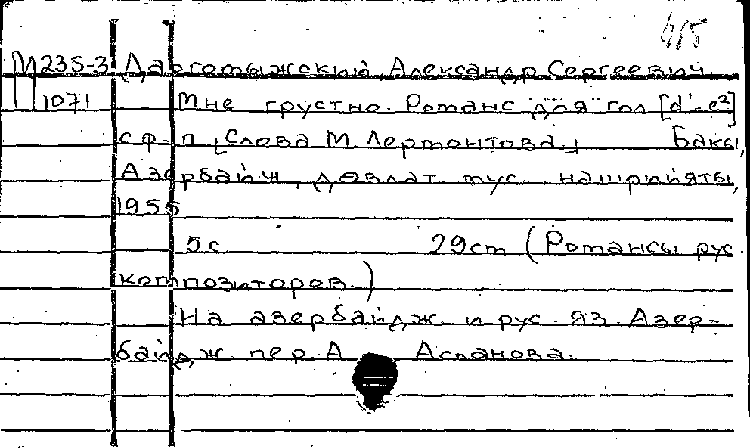 М235-3 Даргомыжский, Александр Сергеевич
1071 Мне грустно. Романс для гол [d'-e²]
с ф-п [Слова М. Лермонтова.] Бакы,
Азербайж, дəвлат мус. нəшриййаты,
1955
5 с 29 cm (Романсы рус
композиторов.)
На азербайдж и рус яз. Азер-
байдж пер. А. Асланова.